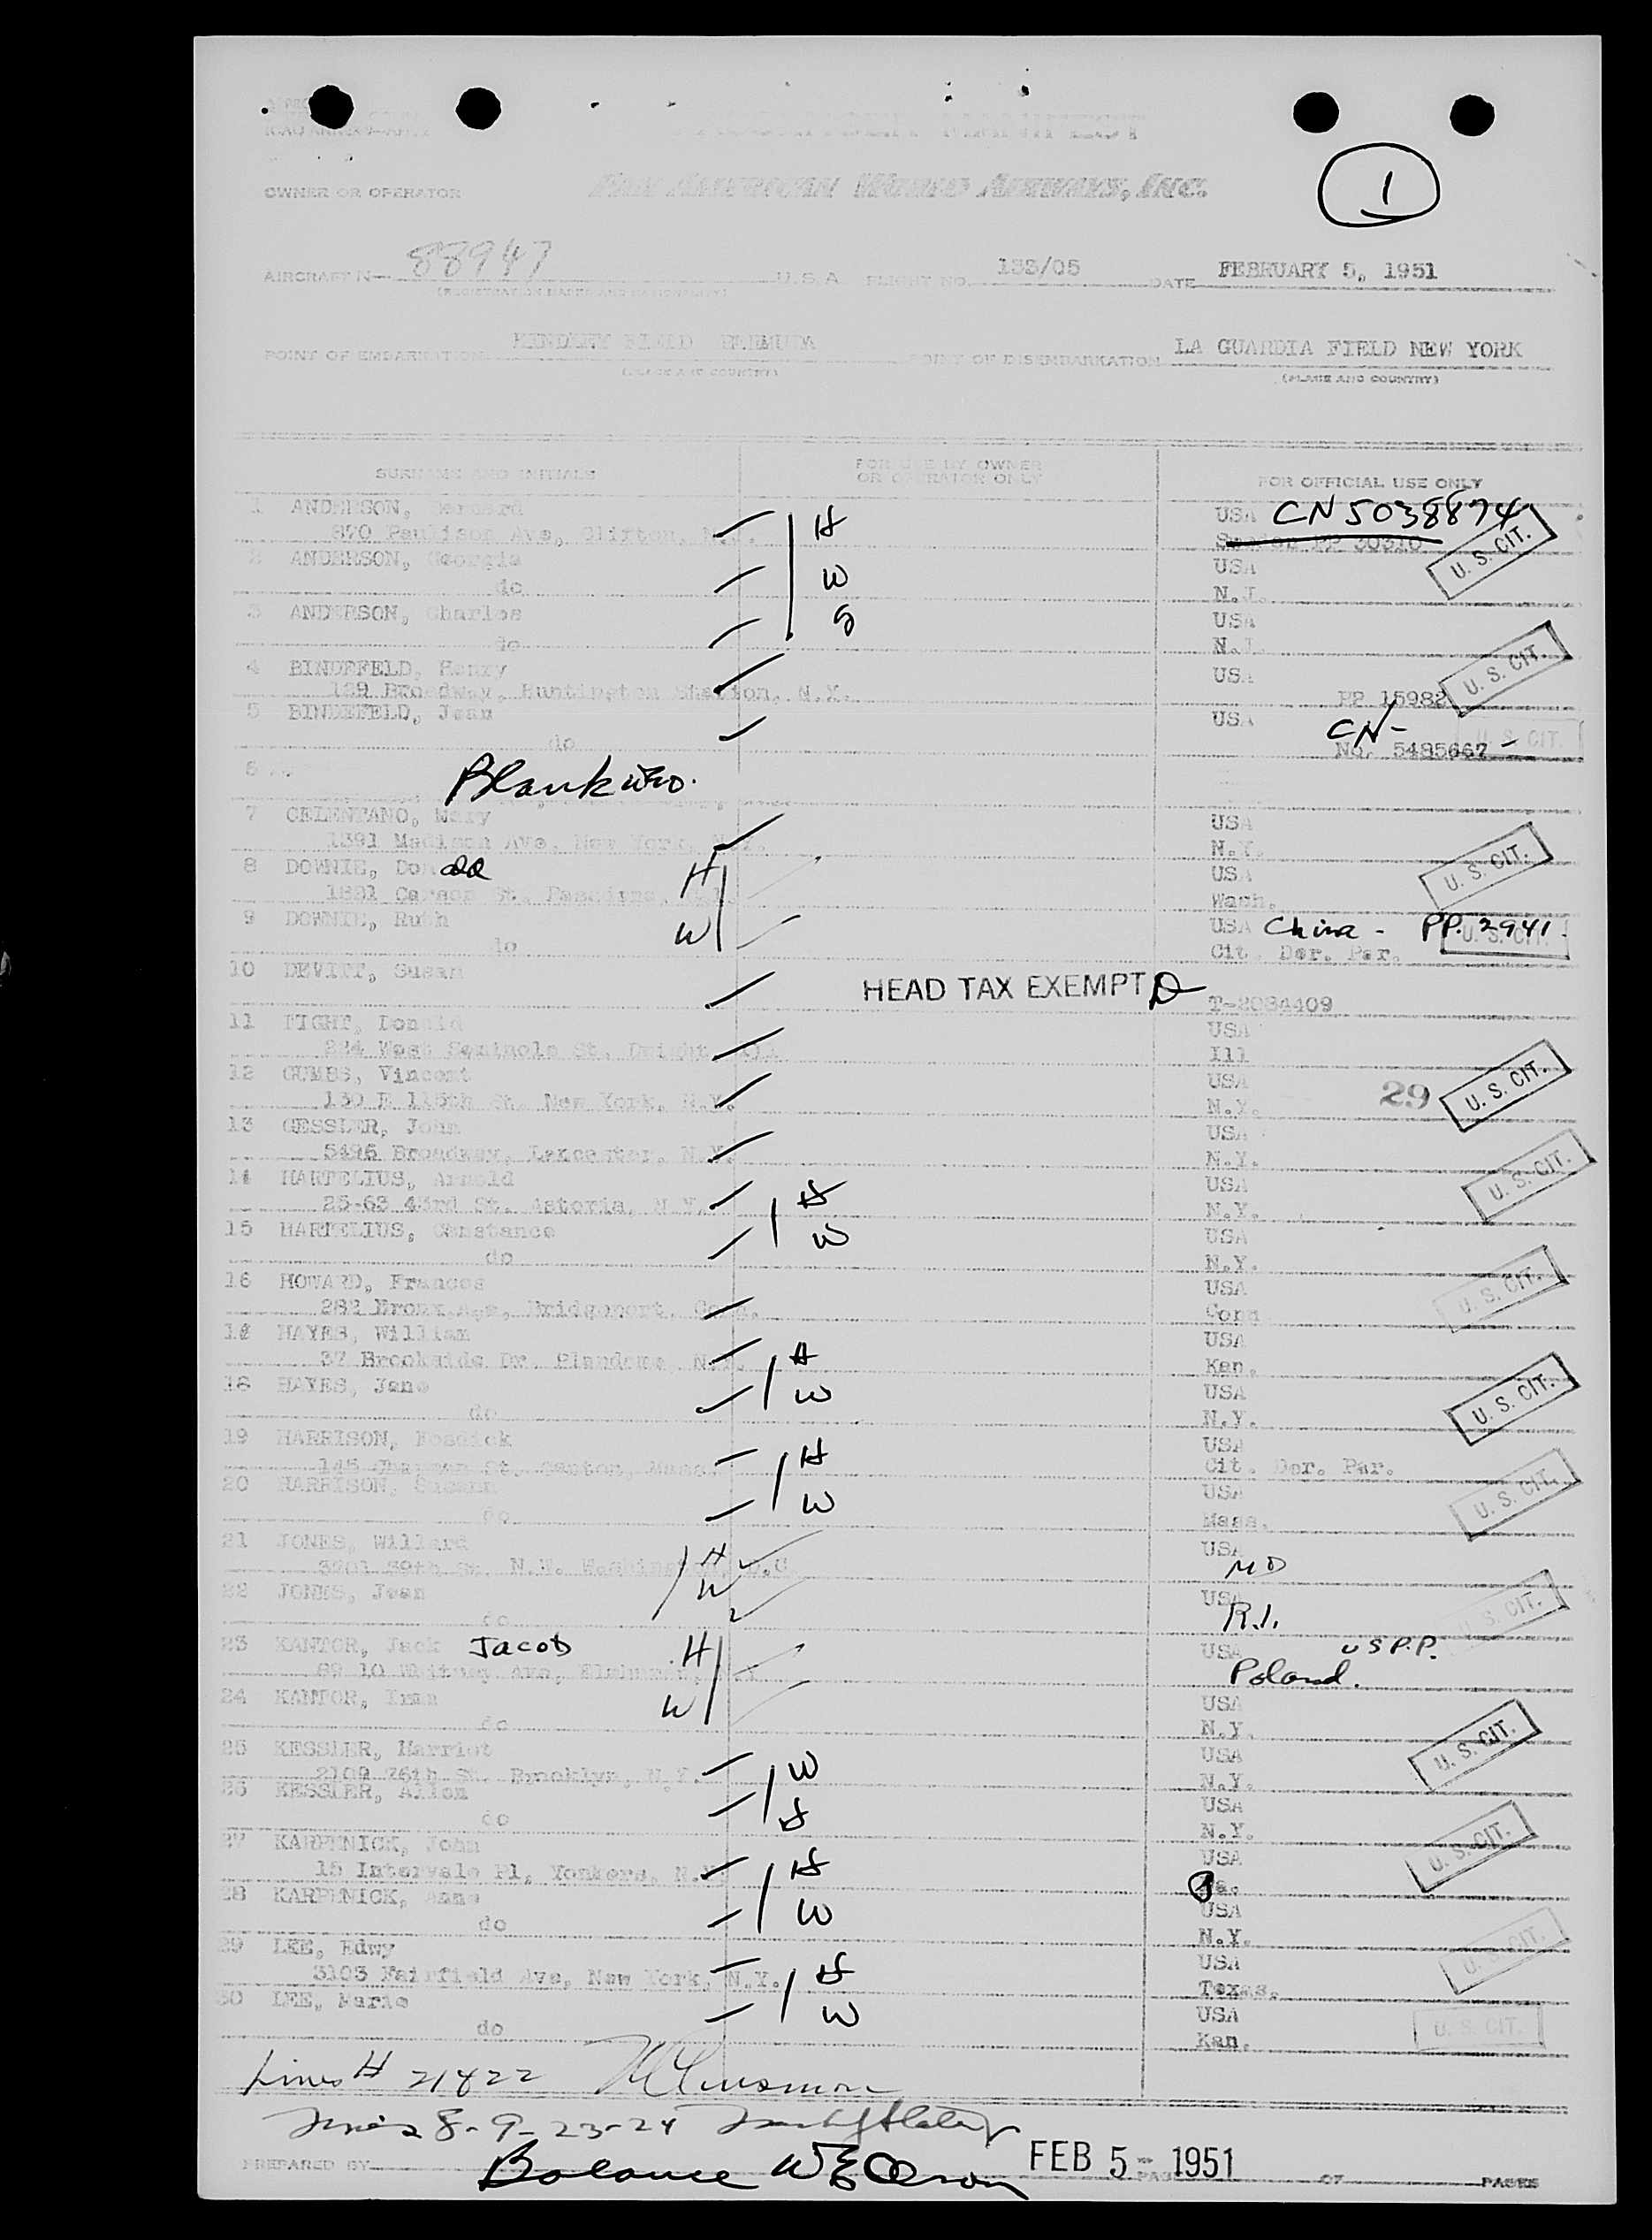 PASSENGER MANIFEST
1
OWNER OR OPERATOR PAN AMERICAN WORLD AIRWAYS, INC.
AIRCRAFT N— 88947 U.S.A FLIGHT NO. 133/05 DATE FEBRUARY 5, 1951
POINT OF EMBARKATION KINDLEY FIELD BERMUDA POINT OF DISEMBARKATION LA GUARDIA FIELD NEW YORK
(PLACE AND COUNTRY) (PLACE AND COUNTRY)
SURNAME AND INITIALS FOR USE BY OWNER OR OPERATOR ONLY FOR OFFICIAL USE ONLY
1 ANDERSON, Bernard H USA CN 5038874
870 Paulison Ave, Clifton, N.J. Sweden PP 30310 U.S. CIT.
2 ANDERSON, Georgia W USA
do N.J.
3 ANDERSON, Charles S USA
do N.J.
4 BINDEFELD, Henry USA U.S. CIT.
Broadway, Huntington Station, N.Y. PP 15982
5 BINDEFELD, Jean USA CN-
do No. 5485667 - U.S. CIT.
6 Blank WEO.
7 CELENTANO, Mary USA
1391 Madison Ave, New York, N.Y. N.Y.
8 DOWNIE, Donald H USA U.S. CIT.
Wash.
9 DOWNIE, Ruth W USA China - PP. 2941
do Cit. Der. Par. U.S. CIT.
10 DEWITT, Susan HEAD TAX EXEMPT
T-2084409
11 FIGHT, Donald USA
224 West Seminole St. Dwight, Ill. Ill
12 GUMBS, Vincent USA 29 U.S. CIT.
130 E 115th St. New York, N.Y. N.Y.
13 GESSLER, John USA
5426 Broadway, Lancaster, N.Y. N.Y.
14 HARTELIUS, Arnold H USA U.S. CIT.
25-63 43rd St. Astoria, N.Y. N.Y.
15 HARTELIUS, Constance W USA
do N.Y.
16 HOWARD, Frances USA
282 Ave, Bridgeport, Conn. Conn U.S. CIT.
HAYES, William H USA
37 Brookside Dr. Plandome, N.Y. Kan.
18 HAYES, Jane W USA U.S. CIT.
do N.Y.
19 HARRISON, Fosdick H USA
145 Chapman St. Canton, Mass. Cit. Der. Par.
20 HARRISON, Susann W USA U.S. CIT.
do Mass.
21 JONES, Willard H USA
3701 39th St. N.W. Washington, D.C. MD
22 JONES, Jean W USA
do R.I. U.S. CIT.
23 KANTOR, Jack Jacob H USA U S P.P.
89 10 Whitney Ave, Elmhurst, Poland.
24 KANTOR, Irma W USA
do N.Y.
25 KESSLER, Harriet W USA U.S. CIT.
2109 76th St. Brooklyn, N.Y. N.Y.
26 KESSLER, Allen S USA
do N.Y.
27 KARPENICK, John H USA U.S. CIT.
15 Intervale Pl, Yonkers, N.Y. Pa.
28 KARPENICK, Anna W USA
do N.Y.
29 LEE, Edwy H USA U.S. CIT.
3103 Fairfield Ave, New York, N.Y. Texas.
30 LEE, Marie W USA
do Kan. U.S. CIT.
Lines # 21 & 22
Lines 8-9-23-24
PREPARED BY Balance W E Olson FEB 5 - 1951 PAGE OF PAGES